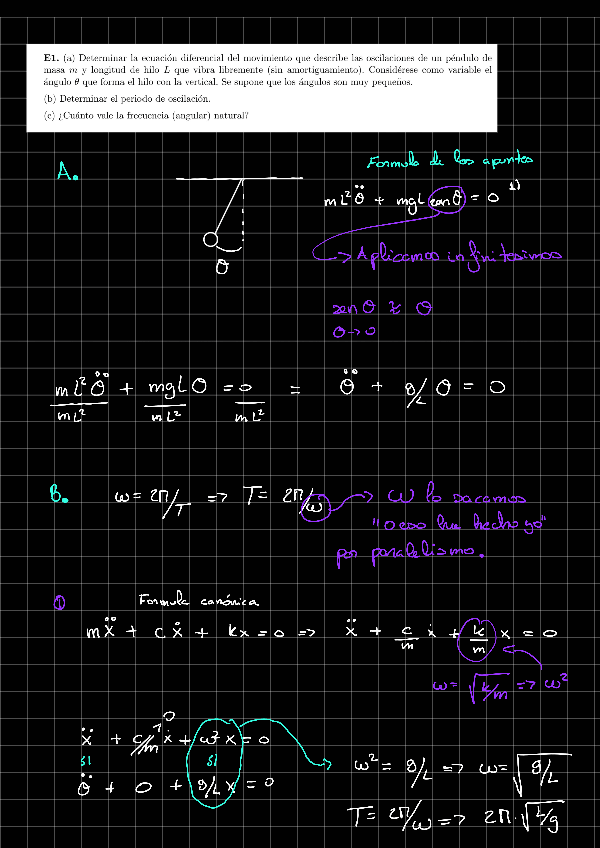 E1. (a) Determinar la ecuación diferencial del movimiento que describe las oscilaciones de un péndulo de
masa m y longitud de hilo L que vibra libremente (sin amortiguamiento). Considérese como variable el
ángulo θ que forma el hilo con la vertical. Se supone que los ángulos son muy pequeños.
(b) Determinar el periodo de oscilación.
(c) ¿Cuánto vale la frecuencia (angular) natural?
A.
Formula de los apuntes
mL²θ̈ + mgL senθ = 0 1)
θ
-> Aplicamos infinitesimos
sen θ ≈ θ
θ -> 0
mL²θ̈/mL² + mgLθ/mL² = 0/mL² = θ̈ + g/L θ = 0
B. ω = 2π/T => T = 2π/ω -> ω lo sacamos
"o eso he hecho yo"
por paralelismo.
① Formula canónica
mẍ + cẋ + kx = 0 => ẍ + c/m ẋ + k/m x = 0
ω = √k/m => ω²
ẍ + c/m ẋ + ω² x = 0
0
SI SI
θ̈ + 0 + g/L x = 0
ω² = g/L => ω = √g/L
T = 2π/ω => 2π·√L/g